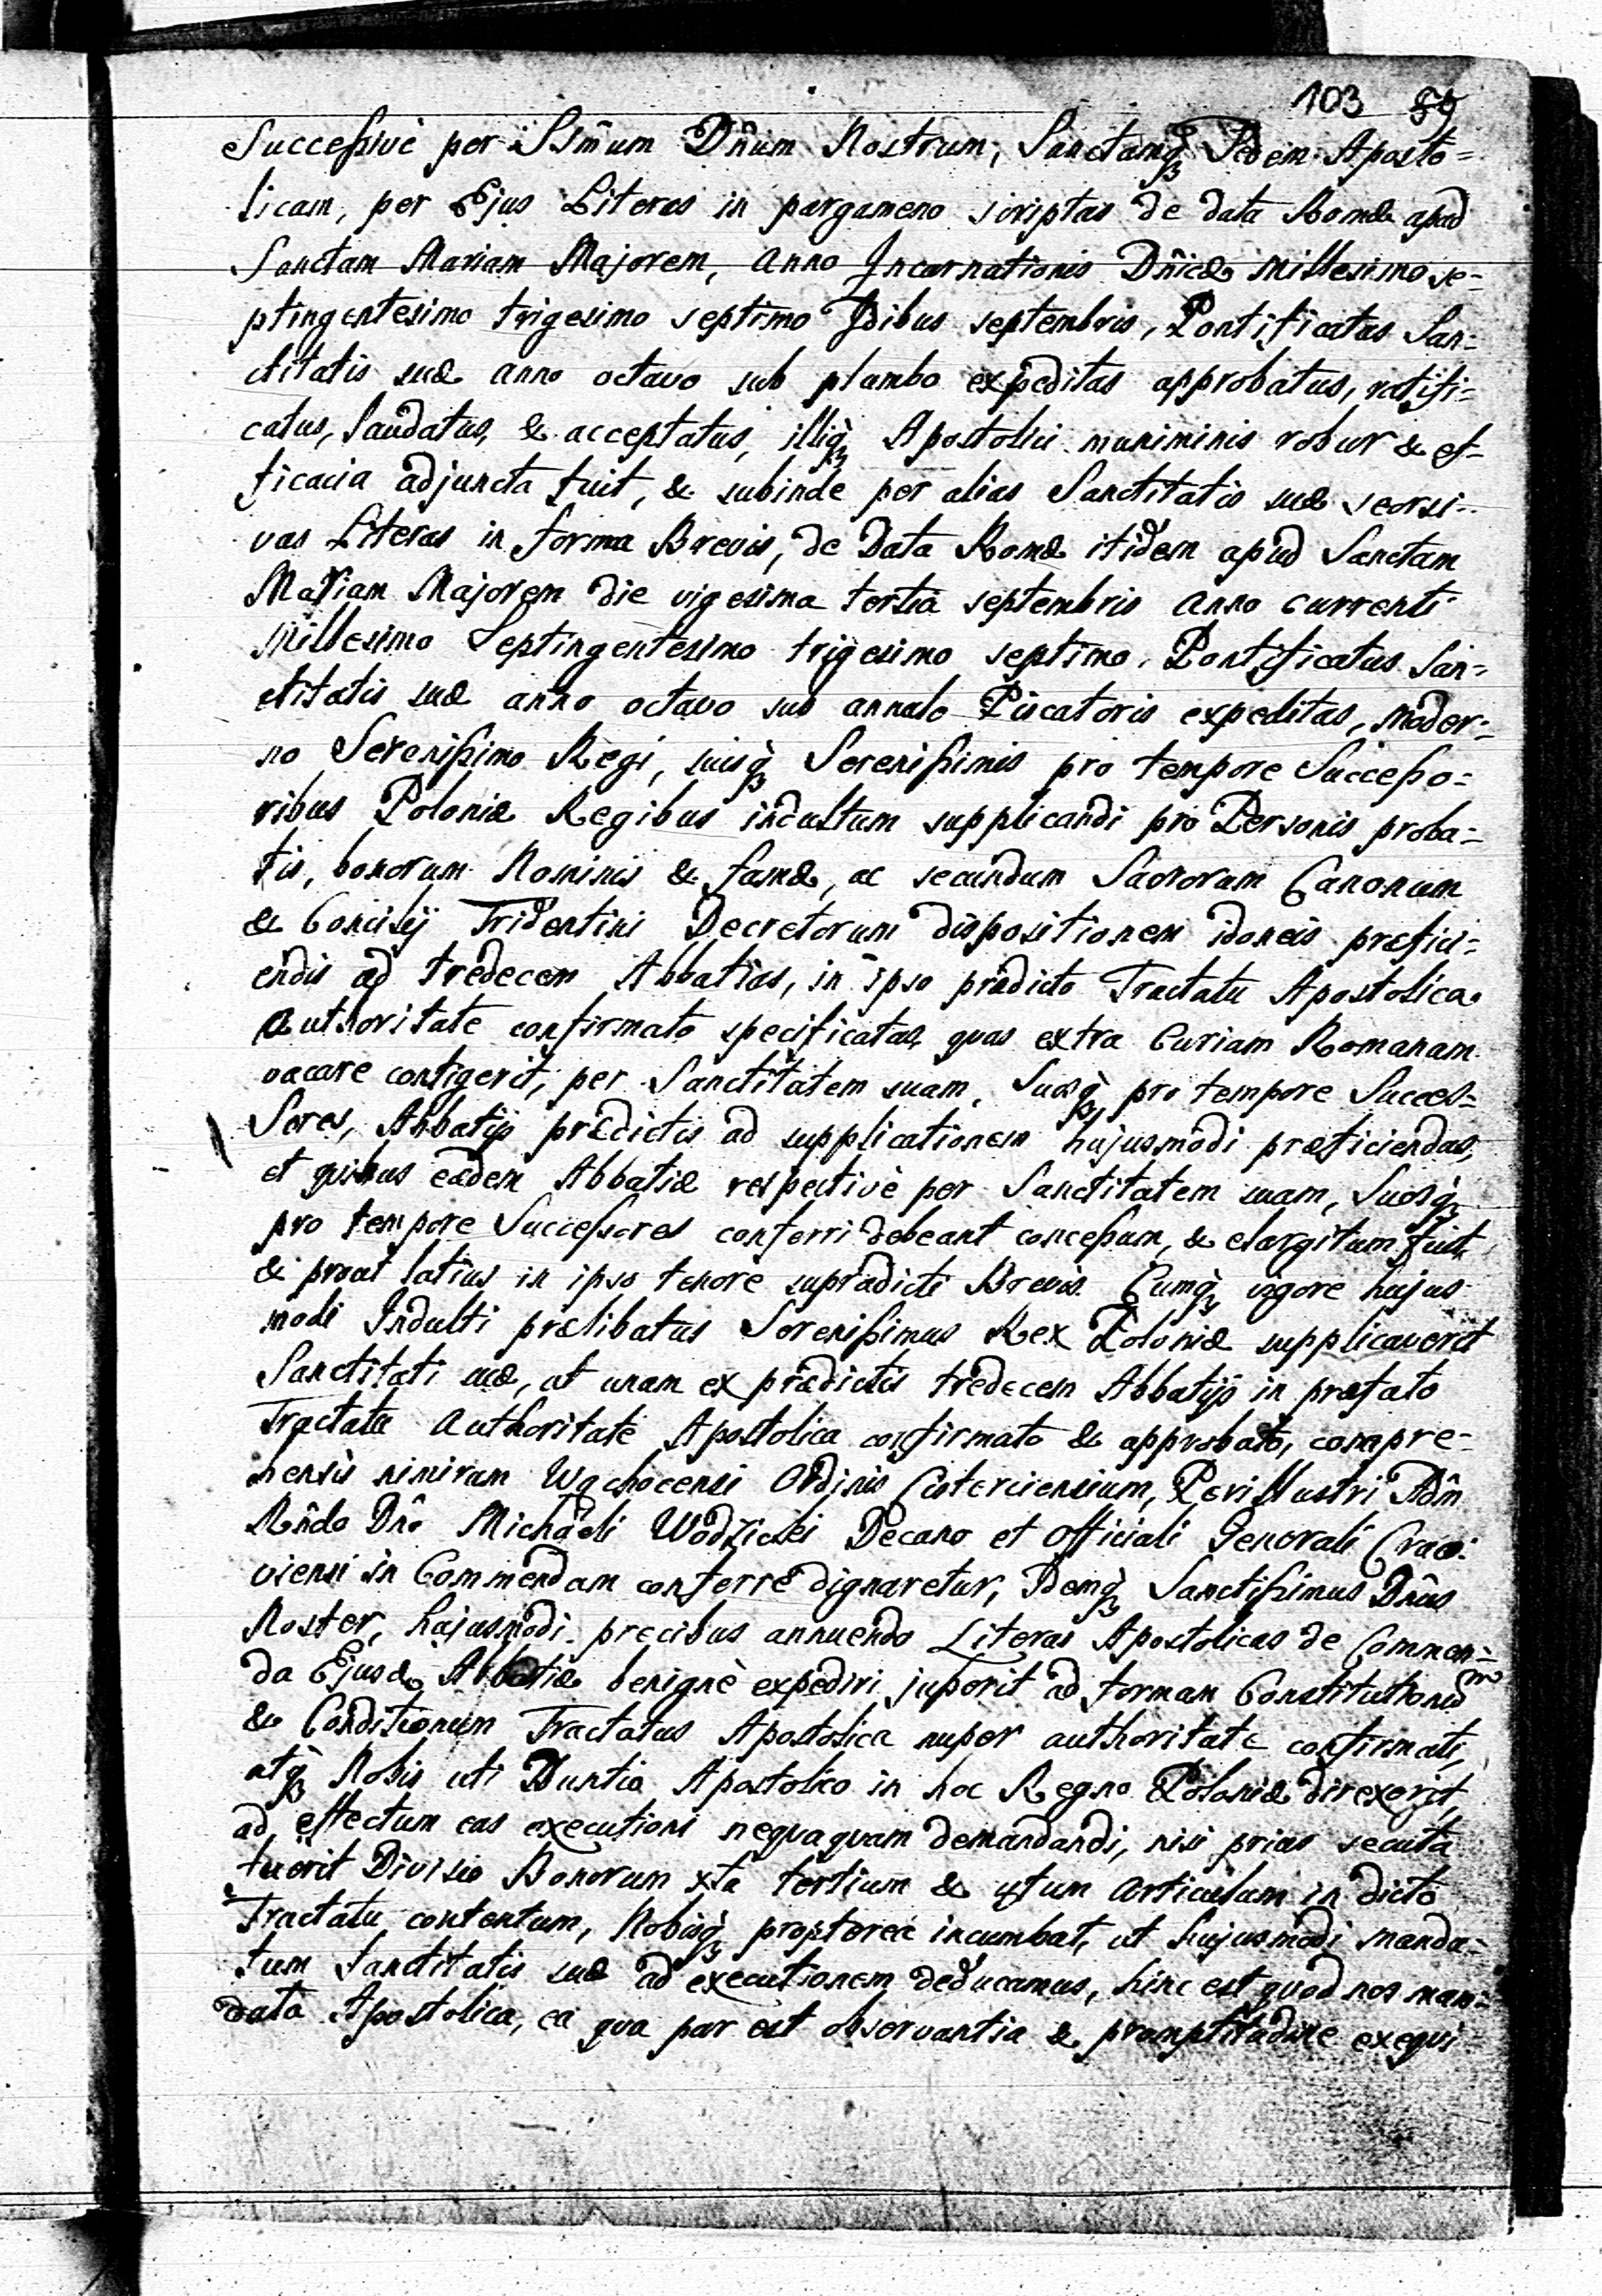 103 59
Successivè per SSm̃um Dñum Nostrum, Sanctamq̀ Sedem Aposto=
licam, per Ejus Literas in pargameno scriptas de data Romæ apud
Sanctam Mariam Majorem, anno Incarnationis Dñicæ Millesimo se-
ptingentesimo trigesimo septimo Idibus septembris, Pontificatus San:
ctitatis suæ anno octavo sub plumbo expeditas approbatus, ratifi=
catus, laudatus, & acceptatus, illiq̀ Apostolici muniminis robur & ef-
ficacia adjuncta fuit, & subinde per alias Sanctitatis suæ seorsi-
vas Literas in forma Brevis, de Data Romæ itidem apud Sanctam
Mariam Majorem die vigesima tertia septembris anno currenti
Millesimo Septingentesimo trigesimo septimo, Pontificatus San-
ctitatis suæ anno octavo sub annulo Piscatoris expeditas, moder:
no Serenissimo Regi, suisq̀ Serenissimis pro tempore Successo=
ribus Poloniæ Regibus indultum supplicandi pro Personis proba=
tis, bonorum Nominis & famæ, ac secundum Sacrorum Canonum
& Concilij Tridentini Decretorum dispositionem idoneis præfici=
endis ad tredecem Abbatias, in ipso prædicto Tractatu Apostolica
Authoritate confirmato specificatas, quas extra Curiam Romanam
vacare contigerit, per Sanctitatem suam, Suosq̀ pro tempore Succes=
Sores, Abbatijs prædictis ad supplicationem hujusmodi præficiendas,
et quibus eædem Abbatiæ respectivè per Sanctitatem suam, Suosq̀
pro tempore Successores conferri debeant concessum, & elargitum fuit,
& prout latius in ipso tenore supradicti Brevis. Cumq̀ vigore hujus
modi Indulti prælibatus Serenissimus Rex Poloniæ supplicaverit
Sanctitati suæ, ut unam ex prædictis tredecem Abbatijs in præfato
Tractatu Authoritate Apostolica confirmato & approbato, compre=
hensis nimirum Wąchocensi Ordinis Cisterciensium, Perillustri Adm̃
Rñdo Dño Michaeli Wodzicki Decano et Officiali Generali Craco:
viensi in Commendam conferre dignaretur, Idemq̀ Sanctissimus Dñus
Noster, hujusmodi precibus annuendo Literas Apostolicas de Commen=
da Ejusdẽ Abbatiæ benignè expediri jusserit ad formam Constitutionum
& Conditionum Tractatus Apostolica nuper authoritate confirmati,
atq̀ Nobis uti Nuntio Apostolico in hoc Regno Poloniæ direxerit,
ad effectum eas executioni nequaquam demandandi, nisi prius secuta
fuerit Divisio Bonorum xta tertium & 4tum Articulum in dicto
Tractatu contentum, Nobisq̀ propterea incumbat, ut hujusmodi manda=
tum Sanctitatis suæ ad executionem deducamus, hinc est quod nos man=
data Apostolica, ea qua par est observantia & promptitudine exequi